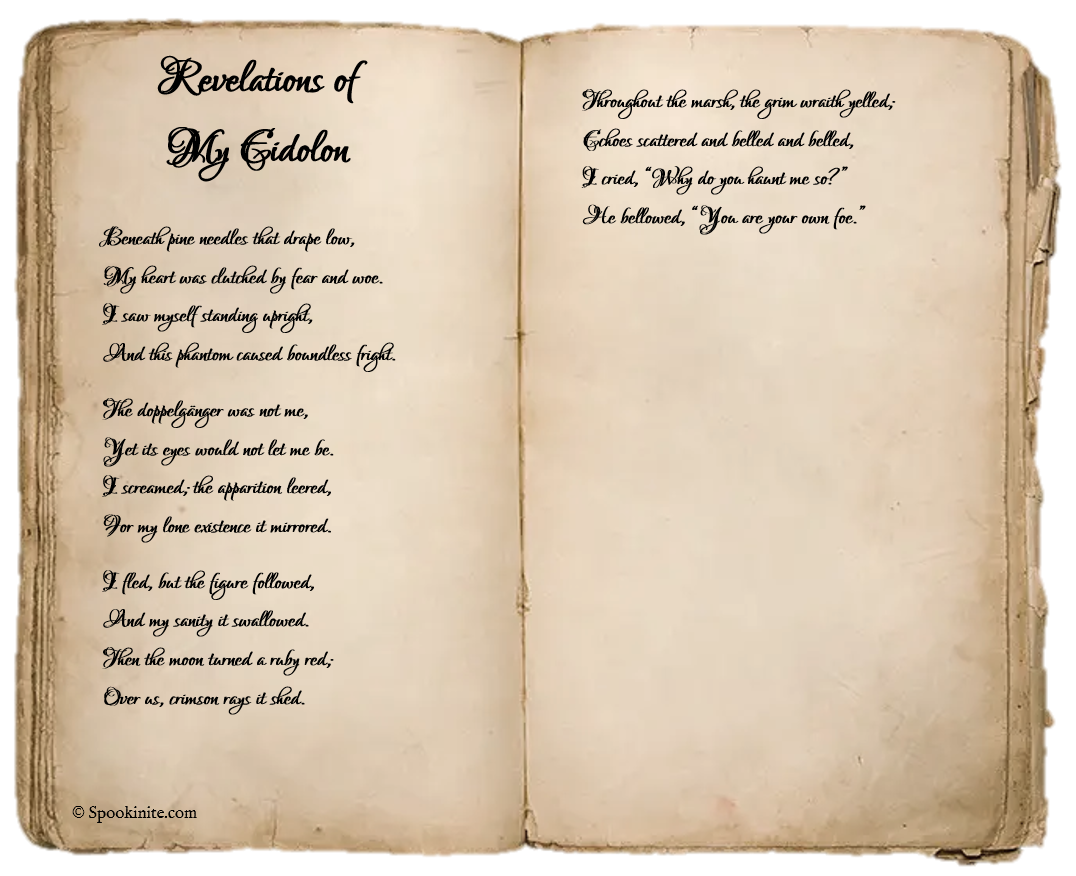 Revelations of
My Eidolon
Beneath pine needles that drape low,
My heart was clutched by fear and woe.
I saw myself standing upright,
And this phantom caused boundless fright.
The doppelgänger was not me,
Yet its eyes would not let me be.
I screamed; the apparition leered,
For my lone existence it mirrored.
I fled, but the figure followed,
And my sanity it swallowed.
Then the moon turned a ruby red;
Over us, crimson rays it shed.
© Spookinite.com
Throughout the marsh, the grim wraith yelled;
Echoes scattered and belled and belled,
I cried, “Why do you haunt me so?”
He bellowed, “You are your own foe.”